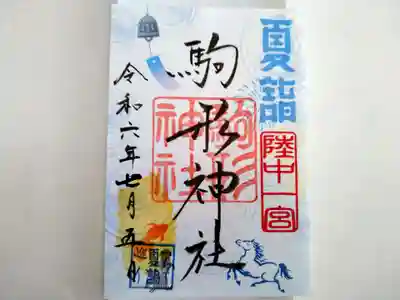 夏詣
陸中一宮
駒形神社
駒形
神社
令和六年七月五日
夏詣